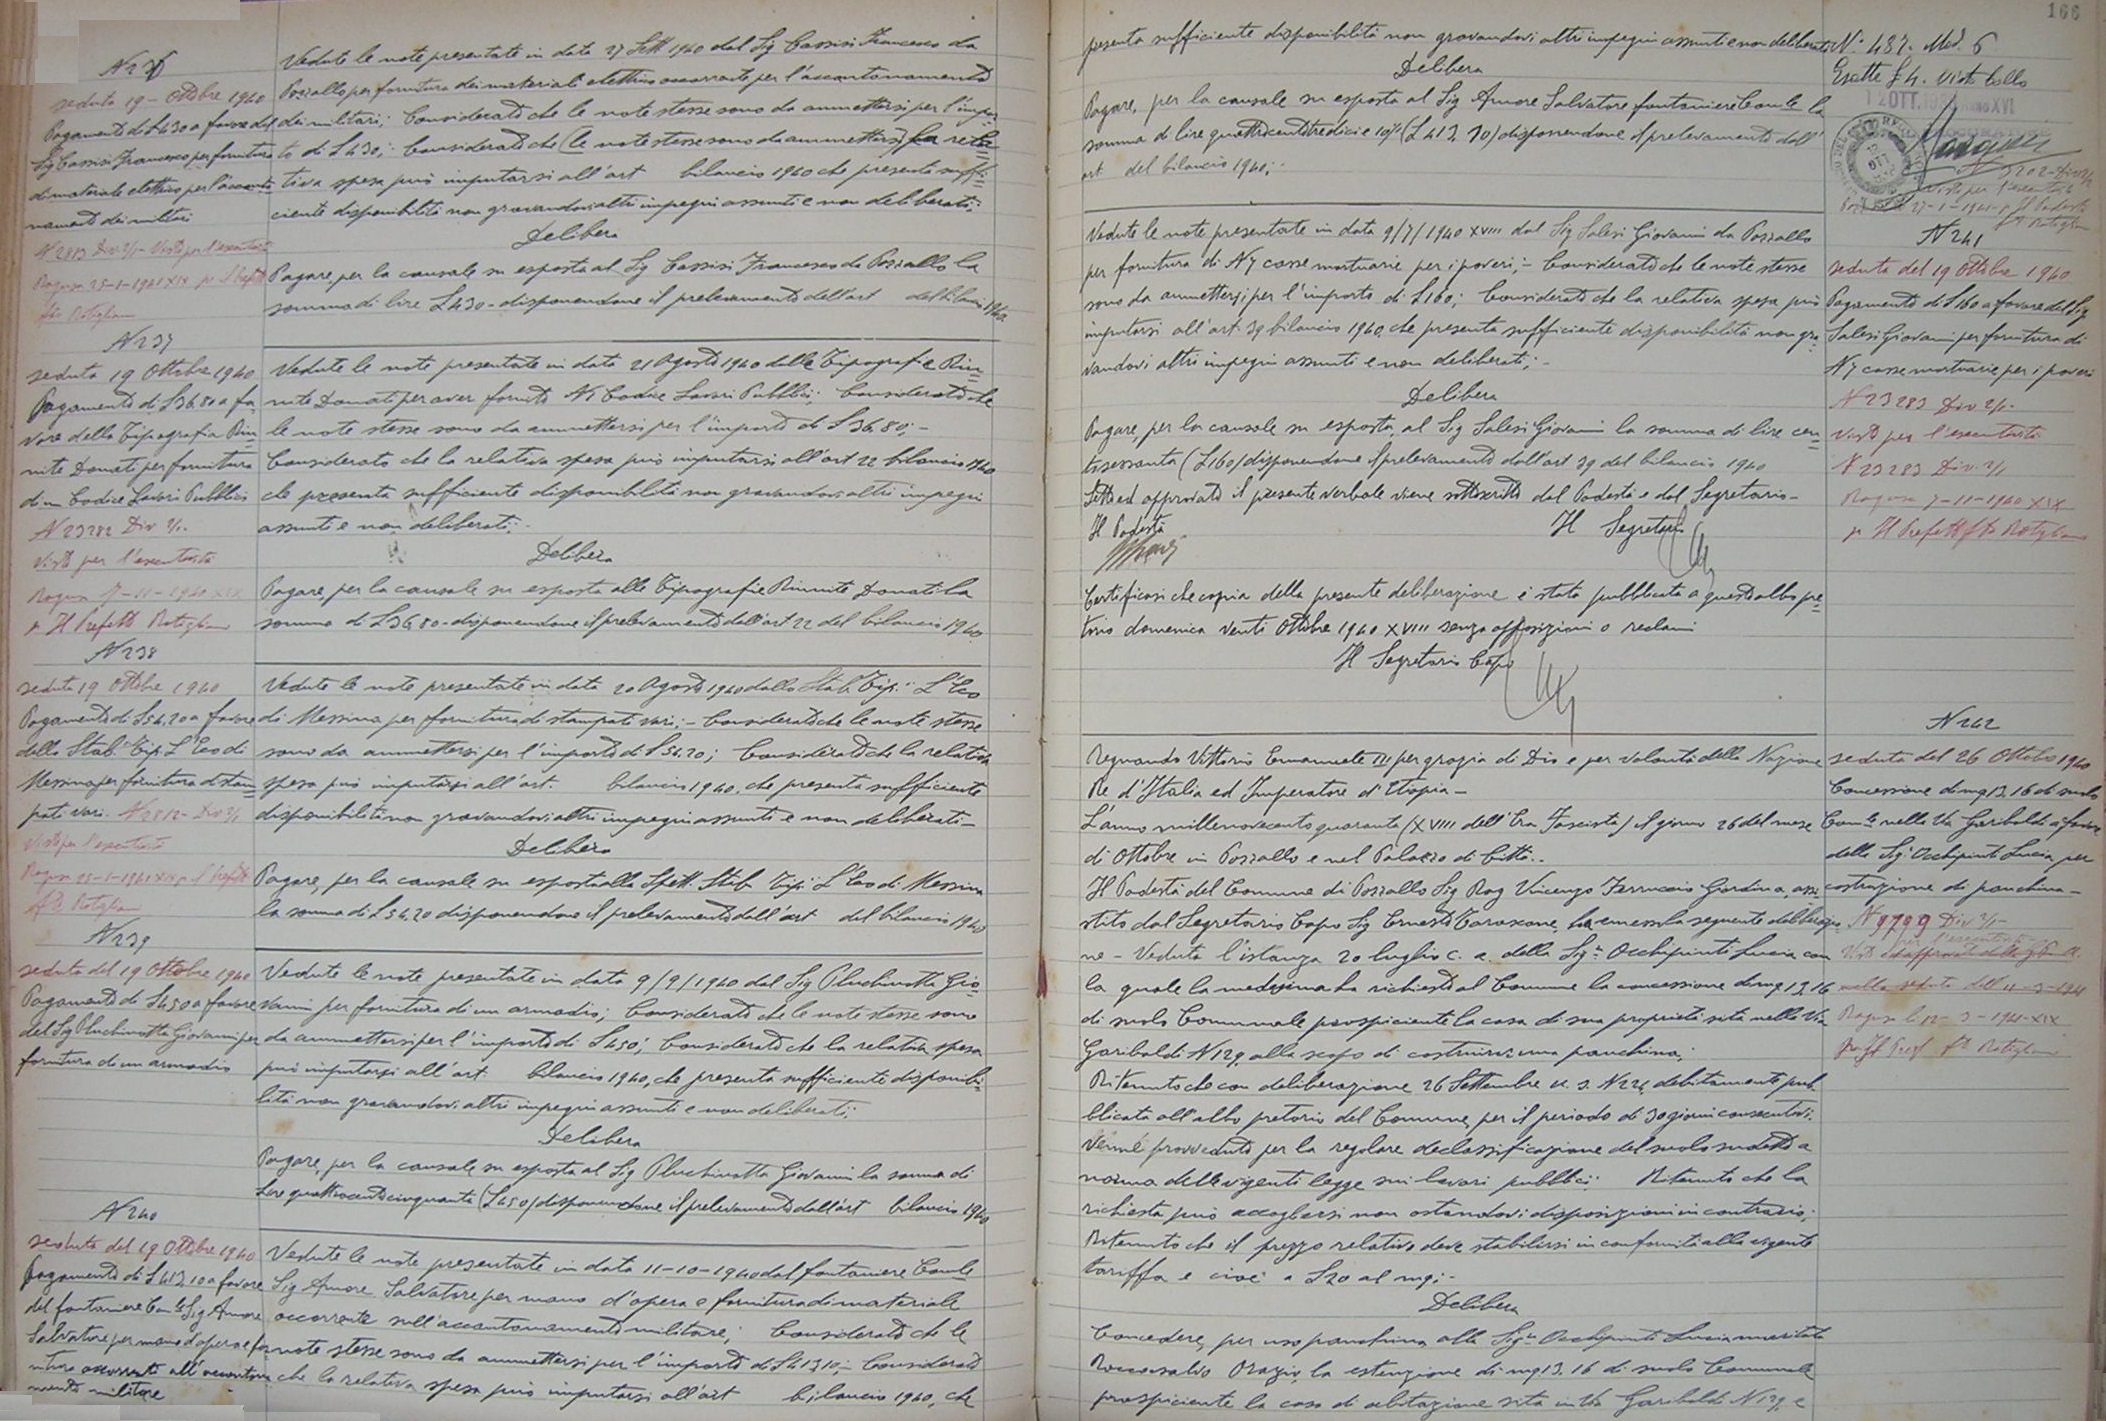 N 236
seduta 19 - Ottobre 1940
Pagamento di £ 430 a favore del
Sig Cassisi Francesco per fornitura
di materiale elettrico per l'accanto
namento dei militari
N 2813 Div 2/1 - Visto per l'esecutorietà
Ragusa 25-1-1941 XIX p Il Prefetto
fto Rotigliano
Vedute le note presentate in data 27 Sett 1940 dal Sig Cassisi Francesco da
Pozzallo per fornitura dei materiale elettrico occorrente per l'accantonamento
dei militari; Considerato che le note stesse sono da ammettersi per l'impor
to di £ 430; Considerato che (le note stesse sono da ammettersi) la rela
tiva spesa può imputarsi all'art bilancio 1940 che presenta suffi
ciente disponibilità non gravandovi altri impegni assunti e non deliberati;
Delibera
Pagare, per la causale su esposta al Sig Cassisi Francesco da Pozzallo la
somma di lire £ 430 - disponendone il prelevamento dell'art del bilancio 1940
N 237
seduta 19 Ottobre 1940
Pagamento di £ 36,80 a fa-
vore della Tipografia Riu
nite Donati per fornitura
di un Codice Lavori Pubblici
N 23282 Div 2/1.
Visto per l'esecutorietà
Ragusa 7-11-1940 XIX
p Il Prefetto Rotigliano
Vedute le note presentate in data 21 Agosto 1940 dalle Tipografie Riu
nite Donati per aver fornito N 1 Codice Lavori Pubblici; Considerato che
le note stesse sono da ammettersi per l'importo di £ 36,80; -
Considerato che la relativa spesa può imputarsi all'art 22 bilancio 1940
che presenta sufficiente disponibilità non gravandovi altri impegni
assunti e non deliberati;
Delibera
Pagare, per la causale su esposta alle Tipografie Riunite Donati la
somma di £ 36,80 - disponendone il prelevamento dall'art 22 del bilancio 1940
N 238
seduta 19 Ottobre 1940
Pagamento di £ 54,20 a favore
dello Stab. Tip. L'Eco di
Messina per fornitura di stam
pati vari. N 2812 - Div 2/1
Visto per l'esecutorietà
Ragusa 25-1-1941 XIX p Il Prefetto
fto Rotigliano
Vedute le note presentate in data 20 Agosto 1940 dallo Stab. Tip. L'Eco
di Messina per fornitura di stampati vari; - Considerato che le note stesse
sono da ammettersi per l'importo di £ 54,20; Considerato che la relativa
spesa può imputarsi all'art. bilancio 1940, che presenta sufficiente
disponibilità non gravandovi altri impegni assunti e non deliberati -
Delibera
Pagare, per la causale su esposta allo Spett. Stab Tip. L'Eco di Messina
la somma di £ 54,20 disponendone il prelevamento dall'art del bilancio 1940
N 239
seduta del 19 Ottobre 1940
Pagamento di £ 450 a favore
del Sg Pluchinotta Giovanni per
fornitura di un armadio
Vedute le note presentate in data 9/9/1940 dal Sig Pluchinotta Gio
vanni per fornitura di un armadio; Considerato che le note stesse sono
da ammettersi per l'importo di £ 450; Considerato che la relativa spesa
può imputarsi all'art bilancio 1940, che presenta sufficiente disponibi
lità non gravandovi altri impegni assunti e non deliberati;
Delibera
Pagare, per la causale su esposta al Sig Pluchinotta Giovanni la somma di
lire quattrocentocinquanta (£ 450) disponendone il prelevamento dall'art bilancio 1940
N 240
seduta del 19 Ottobre 1940
Pagamento di £ 413,10 a favore
del fontaniere Com.le Sig Amore
Salvatore per mano d'opera e for
nitura occorrente all'accantona
mento militare
Vedute le note presentate in data 11-10-1940 dal fontaniere Com.le
Sig Amore Salvatore per mano d'opera e fornitura di materiale
occorrente sull'accantonamento militare; Considerato che le
note stesse sono da ammettersi per l'importo di £ 413,10; Considerato
che la relativa spesa può imputarsi all'art bilancio 1940, che
166
presenta sufficiente disponibilità non gravandovi altri impegni assunti e non deliberati
Delibera
Pagare, per la causale su esposta al Sig Amore Salvatore fontaniere Com.le la
somma di lire quattrocentotredici e 10% (£ 413,10) disponendone il prelevamento dall'
art del bilancio 1940;
N. 487. Mod. 6
Esatte £ 4. visto bollo
12 OTT.
Visto per l'esecutorietà
27-1-1941 p Il Prefetto
fto Rotigliano
Vedute le note presentate in data 9/7/1940 XVIII dal Sig Salesi Giovanni da Pozzallo
per fornitura di N 7 casse mortuarie per i poveri; - Considerato che le note stesse
sono da ammettersi per l'importo di £ 160; Considerato che la relativa spesa può
imputarsi all'art. 39 bilancio 1940, che presenta sufficiente disponibilità non gra
vandovi altri impegni assunti e non deliberati; -
Delibera
Pagare, per la causale su esposta, al Sig Salesi Giovanni la somma di lire cen
tosessanta (£ 160) disponendone il prelevamento dall'art 39 del bilancio 1940
Letto ed approvato il presente verbale viene sottoscritto dal Podestà e dal Segretario -
Il Podestà Il Segretario
N 241
seduta del 19 Ottobre 1940
Pagamento di £ 160 a favore del Sig
Salesi Giovanni per fornitura di
N 7 casse mortuarie per i poveri
N 23283 Div 2/1.
Visto per l'esecutorietà
N 23283 Div. 2/1
Ragusa 7-11-1940 XIX
p Il Prefetto fto Rotigliano
Certificasi che copia della presente deliberazione è stata pubblicata a quest'albo pre
torio domenica venti Ottobre 1940 XVIII senza opposizioni o reclami
Il Segretario Capo
N 242
seduta del 26 Ottobre 1940
Concessione di mq 13,16 di suolo
Com.le nella Via Garibaldi a favore
della Sig. Occhipinti Lucia per
costruzione di panchina -
N 9799 Div 2/1 -
per l'esecutorietà
Visto ed approvato dalla G.P.A.
nella seduta dell'11-3-1941
Ragusa li 12-3-1941-XIX
p Il Pref fto Rotigliano
Regnando Vittorio Emanuele III per grazia di Dio e per volontà della Nazione
Re d'Italia ed Imperatore d'Etiopia -
L'anno millenovecentoquaranta (XVIII dell'Era Fascista) il giorno 26 del mese
di Ottobre in Pozzallo e nel Palazzo di Città..
Il Podestà del Comune di Pozzallo Sig Rag Vincenzo Ferruccio Giardina, assi
stito dal Segretario Capo Sig Ernesto Tarascone, ha emesso la seguente deliberazio
ne - Veduta l'istanza 20 luglio c. a. della Sig.ra Occhipinti Lucia con
la quale la medesima ha richiesto al Comune la concessione di mq 13,16
di suolo Comunale prospiciente la casa di sua proprietà sita nella Via
Garibaldi N 129, allo scopo di costruirvi una panchina;
Ritenuto che con deliberazione 26 Settembre u. s. N 224, debitamente pub
blicata all'albo pretorio del Comune, per il periodo di 30 giorni consecutivi.
venne provveduto per la regolare declassificazione del suolo sudetto a
norma delle vigenti legge sui lavori pubblici; Ritenuto che la
richiesta può accogliersi non ostandovi disposizioni in contrario;
Ritenuto che il prezzo relativo deve stabilirsi in conformità alla vigente
tariffa e cioè a £ 20 al mq; -
Delibera
Concedere, per uso panchina alla Sig.ra Occhipinti Lucia maritata
Roccasalvo Orazio, la estenzione di mq 13,16 di suolo Comunale
prospiciente la casa di abitazione sita in Via Garibaldi N 129, e